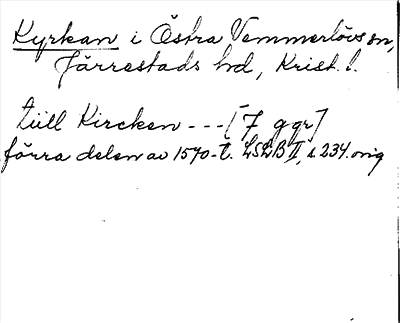 Kyrkan i Östra Vemmerlövs sn,
Järrestads hd, Krist. l.
tiill Kircken --- [7 ggr]
förra delen av 1570-t. LSLB II, s. 234. orig